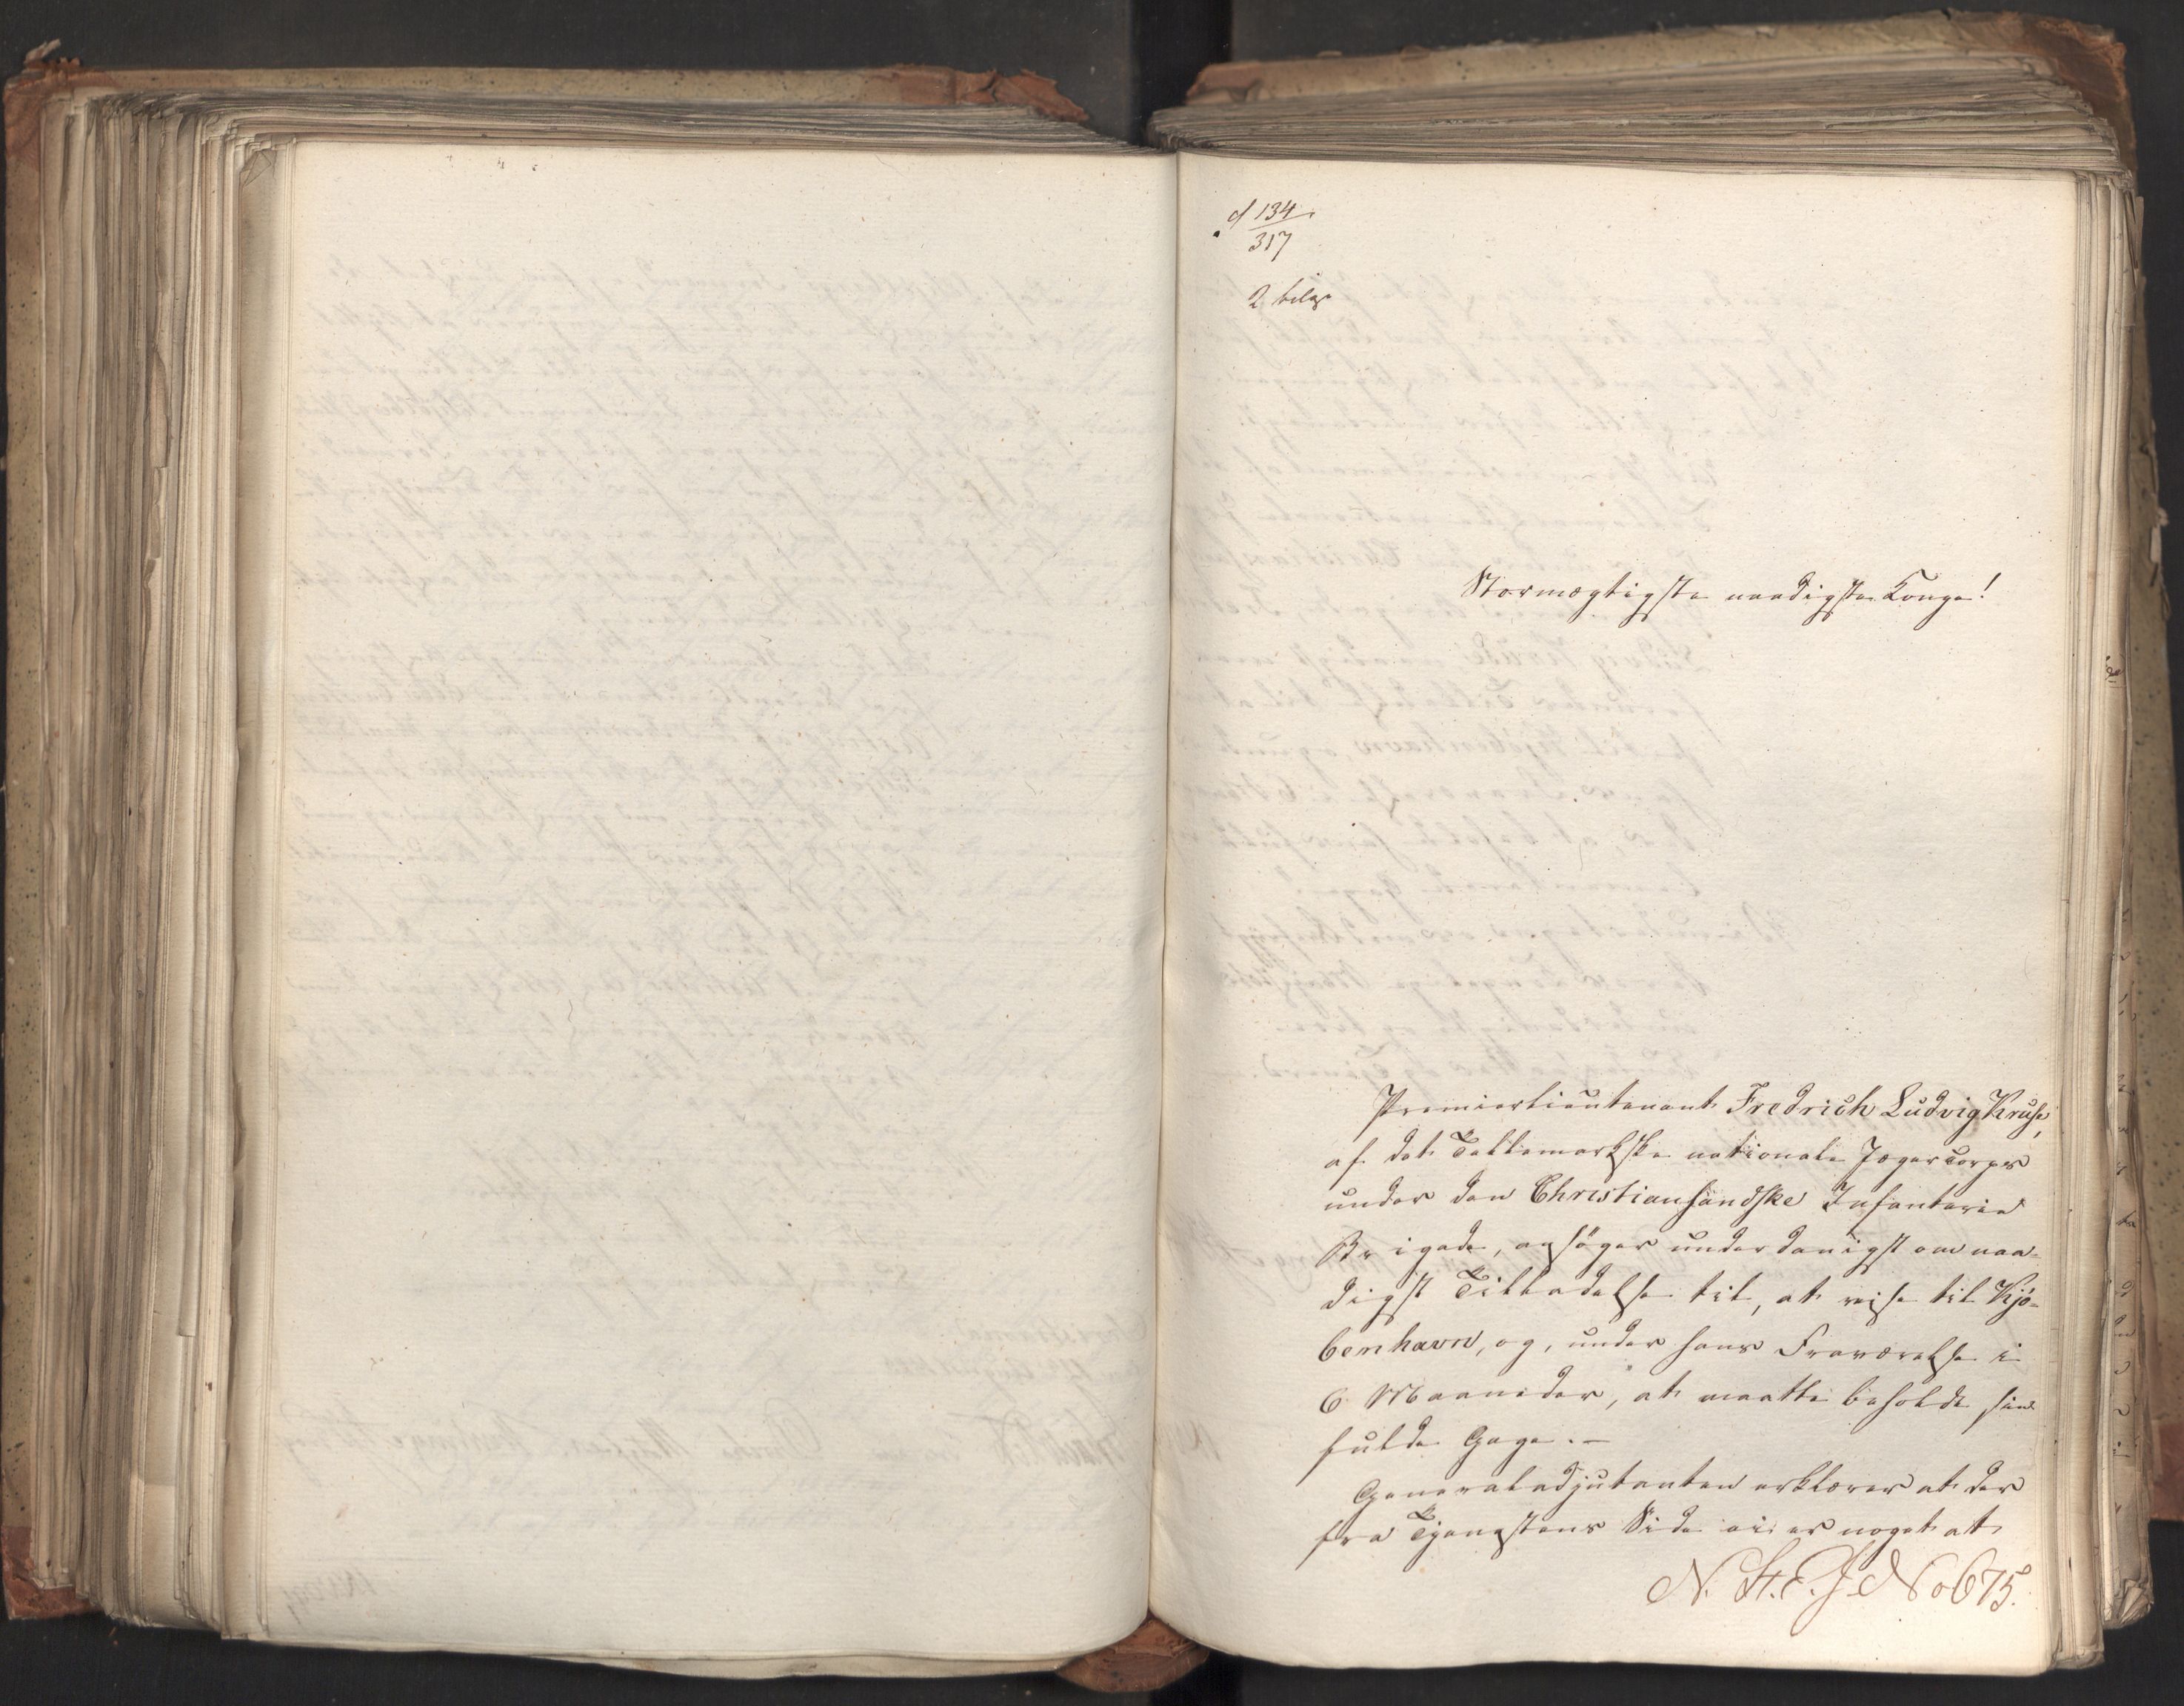 d 134
317
2 bilag
Stormægtigste naadigste Konge!
Premierlieutenant Fredrich Ludvig Kruse,
af det Tellemarkske nationale Jægercorps
under den Christiansandske Infanterie
Brigade, ansöger underdanigst om naa-
digst Tilladelse til, at reise til Kjö-
benhavn, og, under hans Fraværelse i
6 Maaneder, at maatte beholde sin
fulde Gage. —
Generaladjutanten erklærer at der
fra Tjenestens Side ei er noget at
N. St. E. J. No 675.